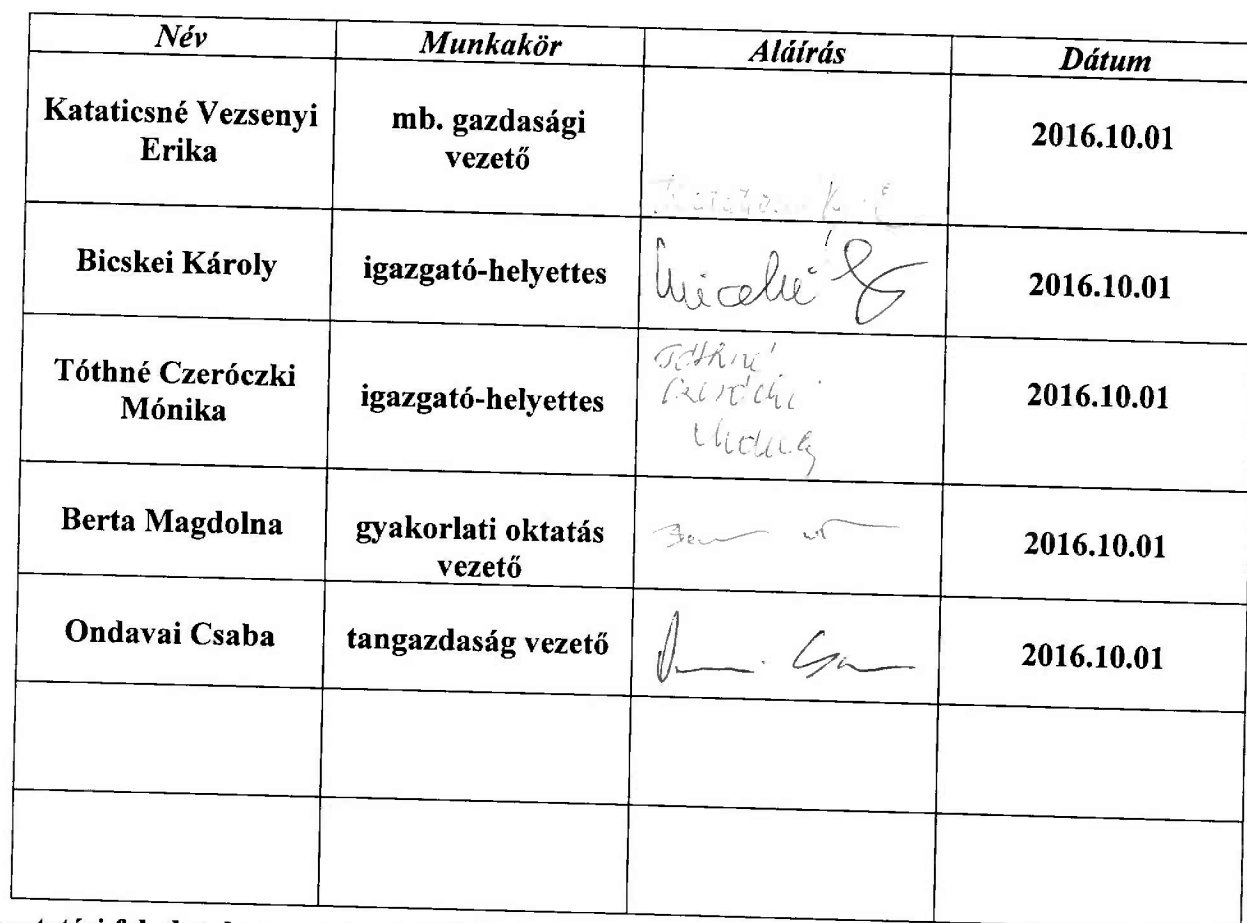 Név Munkakör Aláírás Dátum
Kataticsné Vezsenyi
Erika
mb. gazdasági
vezető
2016.10.01
Bicskei Károly igazgató-helyettes 2016.10.01
Tóthné Czeróczki
Mónika
igazgató-helyettes
Tóthné
2016.10.01
Berta Magdolna
gyakorlati oktatás
vezető
2016.10.01
Ondavai Csaba tangazdaság vezető 2016.10.01